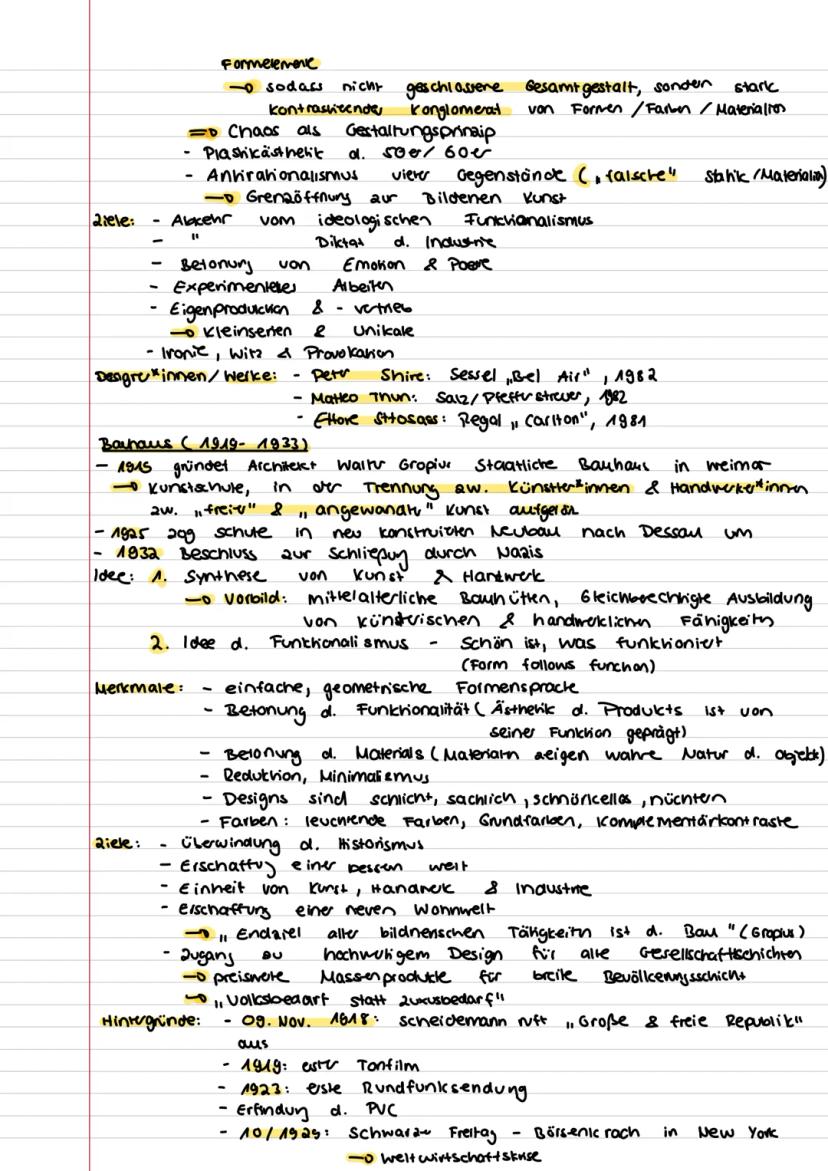 Formelemente
→ sodass nicht geschlossene Gesamtgestalt, sondern stark
kontrastierendes Konglomerat von Formen / Farben / Materialien
⇒ Chaos als Gestaltungsprinzip
- Plastikästhetik d. 50er / 60er
- Antirationalismus vieler Gegenstände („falsche" Statik / Materialien)
→ Grenzöffnung zur Bildenen Kunst
Ziele: - Abkehr vom ideologischen Funktionalismus
- " Diktat d. Industrie
- Betonung von Emotion & Poesie
- Experimentelles Arbeiten
- Eigenproduktion & - vertrieb
→ Kleinserien & Unikate
- Ironie, Witz & Provokation
Designer*innen / Werke: - Peter Shire: Sessel „Bel Air", 1982
- Matteo Thun: Salz / Pfefferstreuer, 1982
- Ettore Sttosass: Regal „Carlton", 1981
Bauhaus (1919 - 1933)
- 1915 gründet Architekt Walter Gropius Staatliche Bauhaus in Weimar
→ Kunstschule, in der Trennung zw. Künstler*innen & Handwerker*innen
zw. „freier" & „angewandter" Kunst aufgelöst
- 1925 zog Schule in neu konstruierten Neubau nach Dessau um
- 1932 Beschluss zur Schließung durch Nazis
Idee: 1. Synthese von Kunst & Handwerk
→ Vorbild: mittelalterliche Bauhütten, Gleichberechtigte Ausbildung
von künstlerischen & handwerklichen Fähigkeiten
2. Idee d. Funktionalismus - Schön ist, was funktioniert
(Form follows function)
Merkmale: - einfache, geometrische Formensprache
- Betonung d. Funktionalität (Ästhetik d. Produkts ist von
seiner Funktion geprägt)
- Betonung d. Materials (Materialien zeigen wahre Natur d. Objekts)
- Reduktion, Minimalismus
- Designs sind schlicht, sachlich, schnörkellos, nüchtern
- Farben: leuchtende Farben, Grundfarben, Komplementärkontraste
Ziele: - Überwindung d. Historismus
- Erschaffung einer bessern Welt
- Einheit von Kunst, Handwerk & Industrie
- Erschaffung einer neuen Wohnwelt
→ „Endziel aller bildnerischen Tätigkeiten ist d. Bau" (Gropius)
- Zugang zu hochwertigem Design für alle Gesellschaftschichten
→ preiswerte Massenprodukte für breite Bevölkerungsschicht
→ „Volksbedarf statt Luxusbedarf"
Hintergründe: - 09. Nov. 1918: Scheidemann ruft „Große & freie Republik"
aus
- 1919: erster Tonfilm
- 1923: erste Rundfunksendung
- Erfindung d. PVC
- 10 / 1929: Schwarzer Freitag - Börsencrach in New York
→ Weltwirtschaftskrise